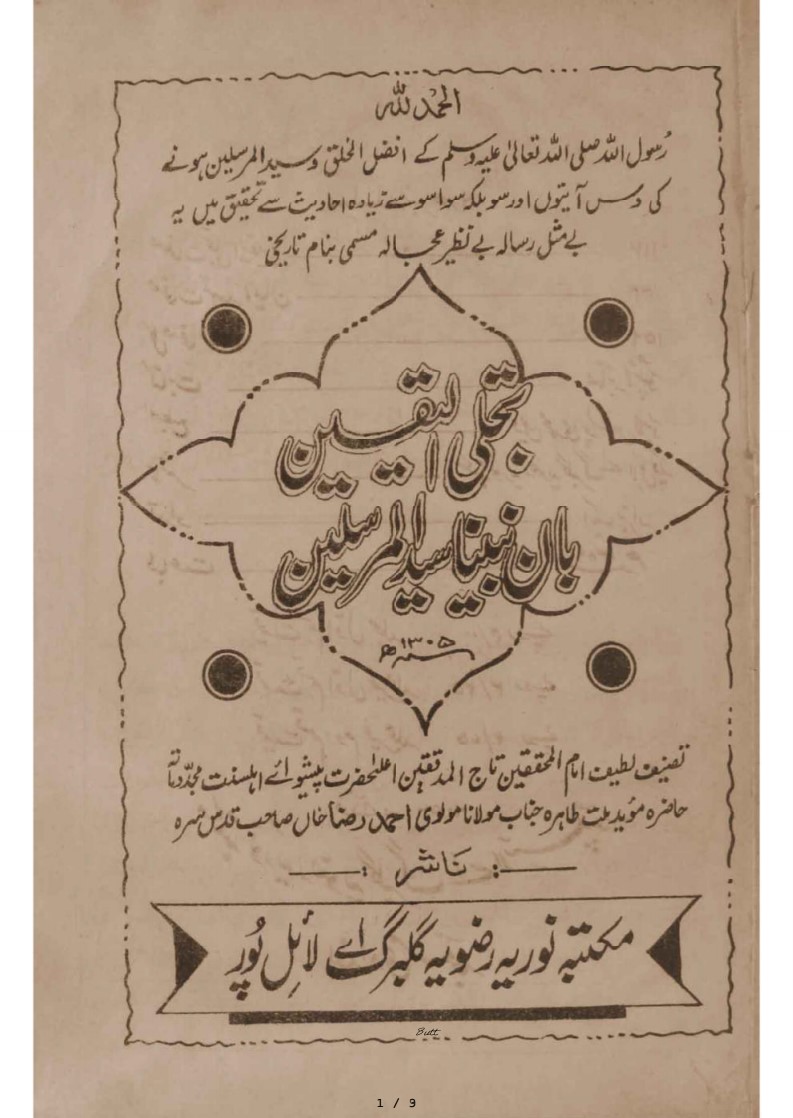 الحمدللہ
رسول اللہ صلی اللہ تعالیٰ علیہ وسلم کے افضل الخلق و سید المرسلین ہونے
کی دس آیتوں اور سو بلکہ سوا سو سے زیادہ احادیث سے تحقیق میں یہ
بے مثل رسالہ بے نظیر عجالہ مسمی بنام تاریخی
تجلی الیقین
بان نبینا سید المرسلین
۱۳۰۵ھ
تصنیف لطیف امام المحققین تاج المدققین اعلیٰحضرت پیشوائے اہلسنت مجدد مائۃ
حاضرہ مؤید ملت طاہرہ جناب مولانا مولوی احمد رضا خاں صاحب قدس سرہ
ناشر:
مکتبہ نوریہ رضویہ گلبرگ اے لائل پُور
Butt
1 / 9